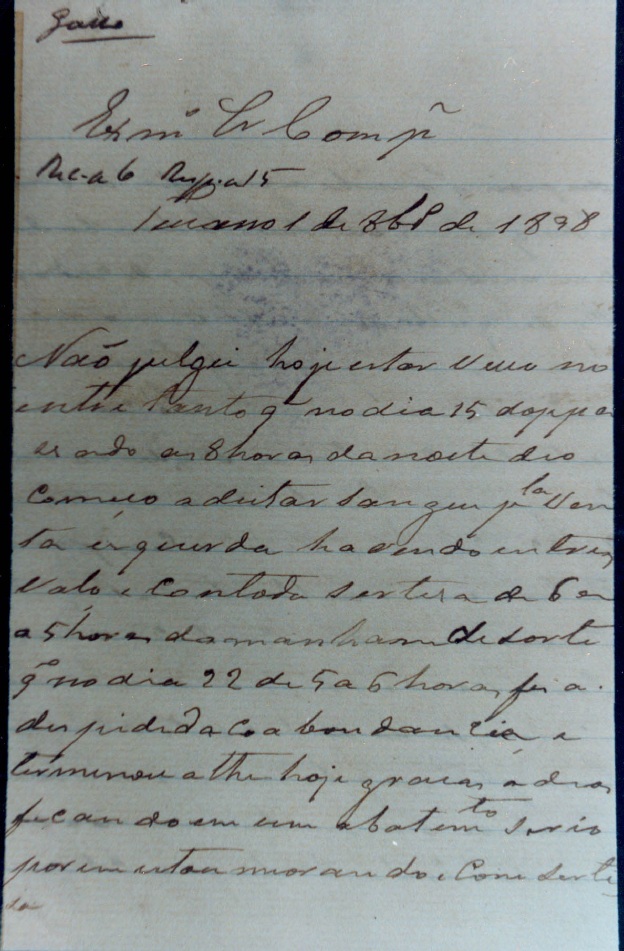 Exmº Sr Compe
Rec-a 6 Resp. a 15
1 de 8bro de 1898
Não julgei hoje estar vivo no
entre tanto q no dia 15 do pp a
as 8 horas da noite deo
comeco a deitar sangue pla ven
ta esquerda havendo entrer
valo e contada serteza de 6 em
a 5 horas da manham de sorte
qe no dia 22 de 5 a 6 horas fes a
despidida co abondancia e
terminou athe hoje gracas a deos
ficando em um abatemto serio
porem estou miorando, com serte
sa